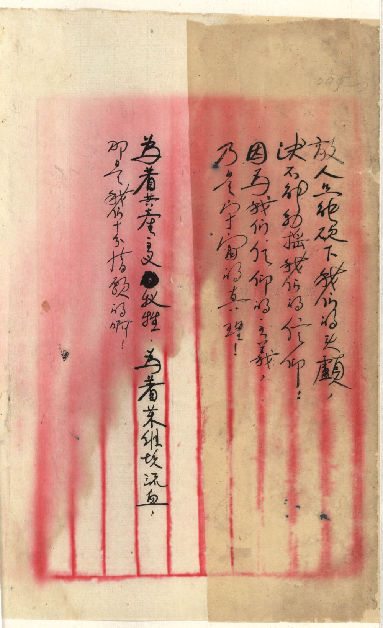 敌人只能砍下我们的头颅,
决不能动摇我们的信仰!
因为我们信仰的主義,
乃是宇宙的真理!
為着共產主义牺牲,為着苏維埃流血,
那是我们十分情願的啊!